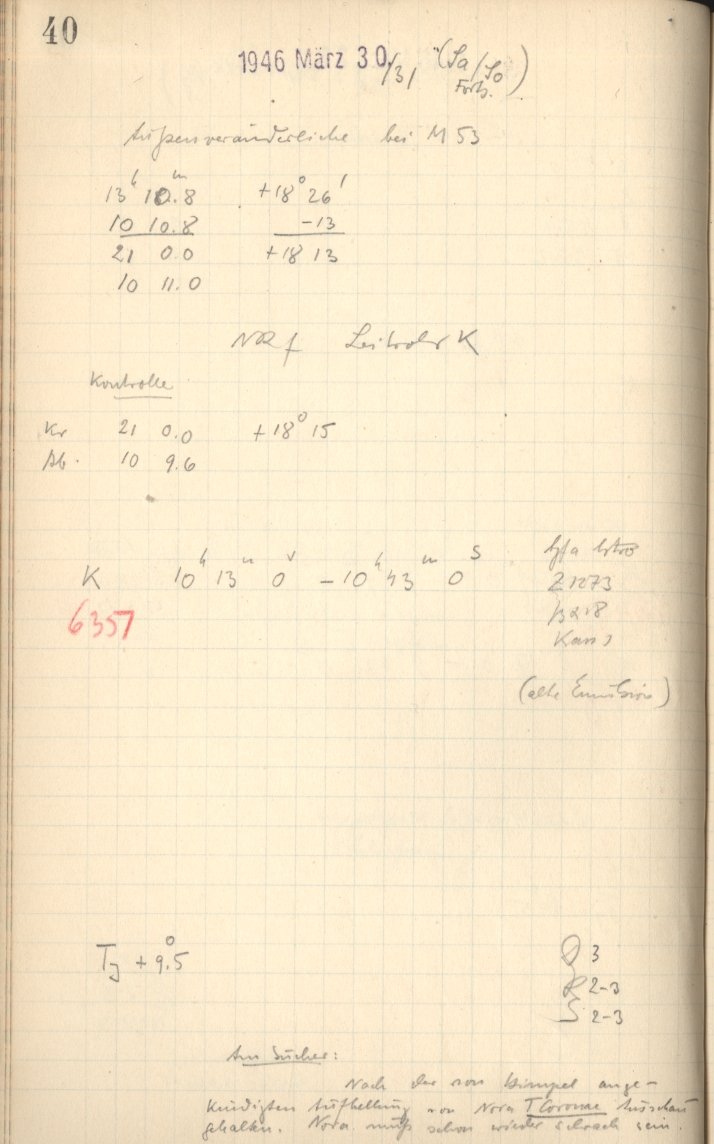 40
1946 März 30./31 (Sa/So
Forts.)
Außenveränderliche bei M 53
13h 10.8m +18° 26'
10 10.8 -13
21 0.0 +18 13
10 11.0
f Leitrohr K
Kontrolle
Kr 21 0.0 +18° 15
Ab. 10 9.6
K 10h 13m 0 - 10h 43m 0s
Agfa Astro
Z 1273
6357
(alte Emulsion)
Tj +9.5°
3
2-3
S 2-3
Am Sucher:
Nach der von Himpel ange-
kündigten Aufhellung von Nova T Coronae Ausschau
gehalten. Nova muß schon wieder schwach sein.